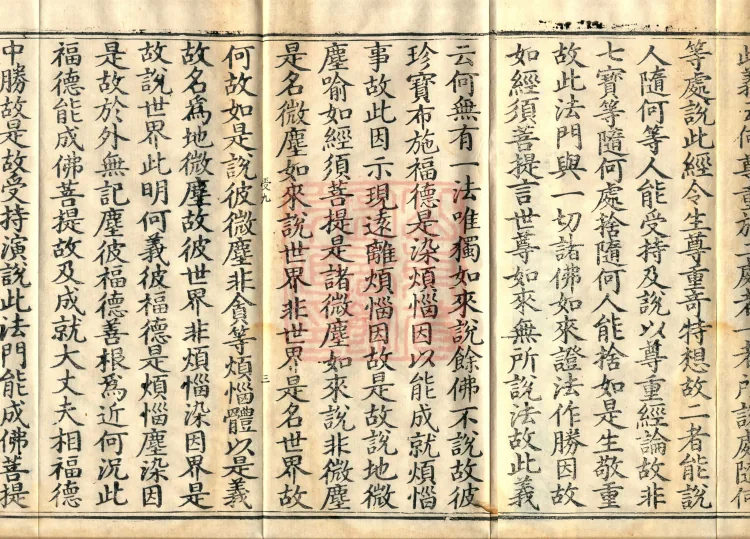 等處說此經令生尊重奇特想故二者能說
人隨何等人能受持及說以尊重經論故非
七寶等隨何處捨隨何人能捨如是生敬重
故此法門與一切諸佛如來證法作勝因故
如經須菩提言世尊如來無所說法故此義
云何無有一法唯獨如來說餘佛不說故彼
珍寶布施福德是染煩惱因以能成就煩惱
事故此因示現遠離煩惱因故是故說地微
塵喻如經須菩提是諸微塵如來說非微塵
是名微塵如來說世界非世界是名世界故
九 三
何故如是說彼微塵非貪等煩惱體以是義
故名爲地微塵故彼世界非煩惱染因界是
故說世界此明何義彼福德是煩惱塵染因
是故於外無記塵彼福德善根爲近何況此
福德能成佛菩提故及成就大丈夫相福德
中勝故是故受持演說此法門能成佛菩提